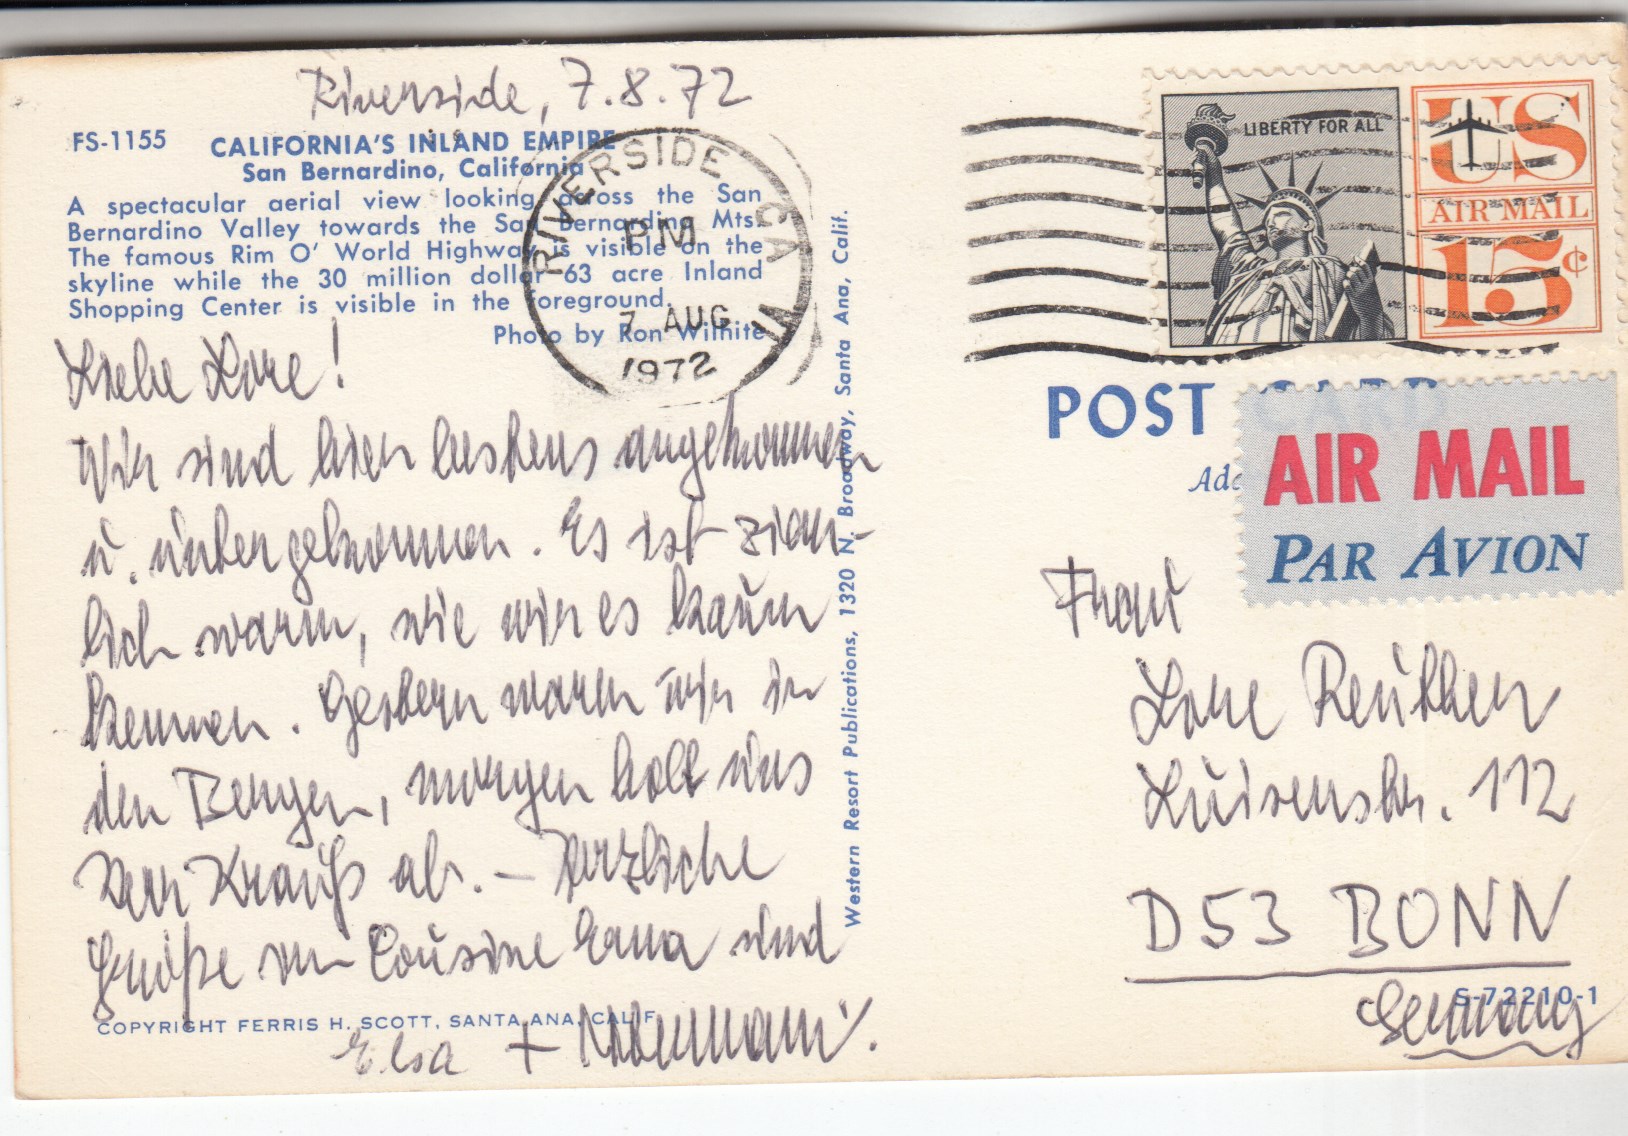 Riverside, 7.8.72
FS-1155
CALIFORNIA'S INLAND EMPIRE
San Bernardino, California
A spectacular aerial view looking across the San
Bernardino Valley towards the San Bernardino Mts.
The famous Rim O' World Highway is visible on the
skyline while the 30 million dollar 63 acre Inland
Shopping Center is visible in the foreground.
Photo by Ron Wilhite
RIVERSIDE CA
PM
7 AUG
1972
Liebe Lore!
Wir sind hier bestens angekommen
u. untergekommen. Es ist ziem-
lich warm, wie wir es kaum
kennen. Gestern waren wir in
den Bergen, morgen holt uns
Herr Krauß ab. – Herzliche
Grüße von Cousine Erna und
Elsa +
COPYRIGHT FERRIS H. SCOTT, SANTA ANA, CALIF.
Western Resort Publications, 1320 N. Broadway, Santa Ana, Calif.
LIBERTY FOR ALL
US
AIR MAIL
15¢
POST CARD
AIR MAIL
PAR AVION
Frau
Lore Reuther
Luisenstr. 112
D 53 BONN
S-72210-1
Germany